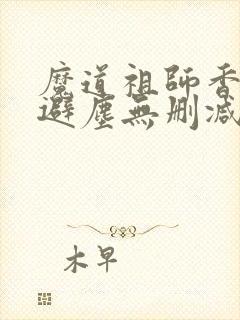 魔道祖師香
避塵無刪減
木早